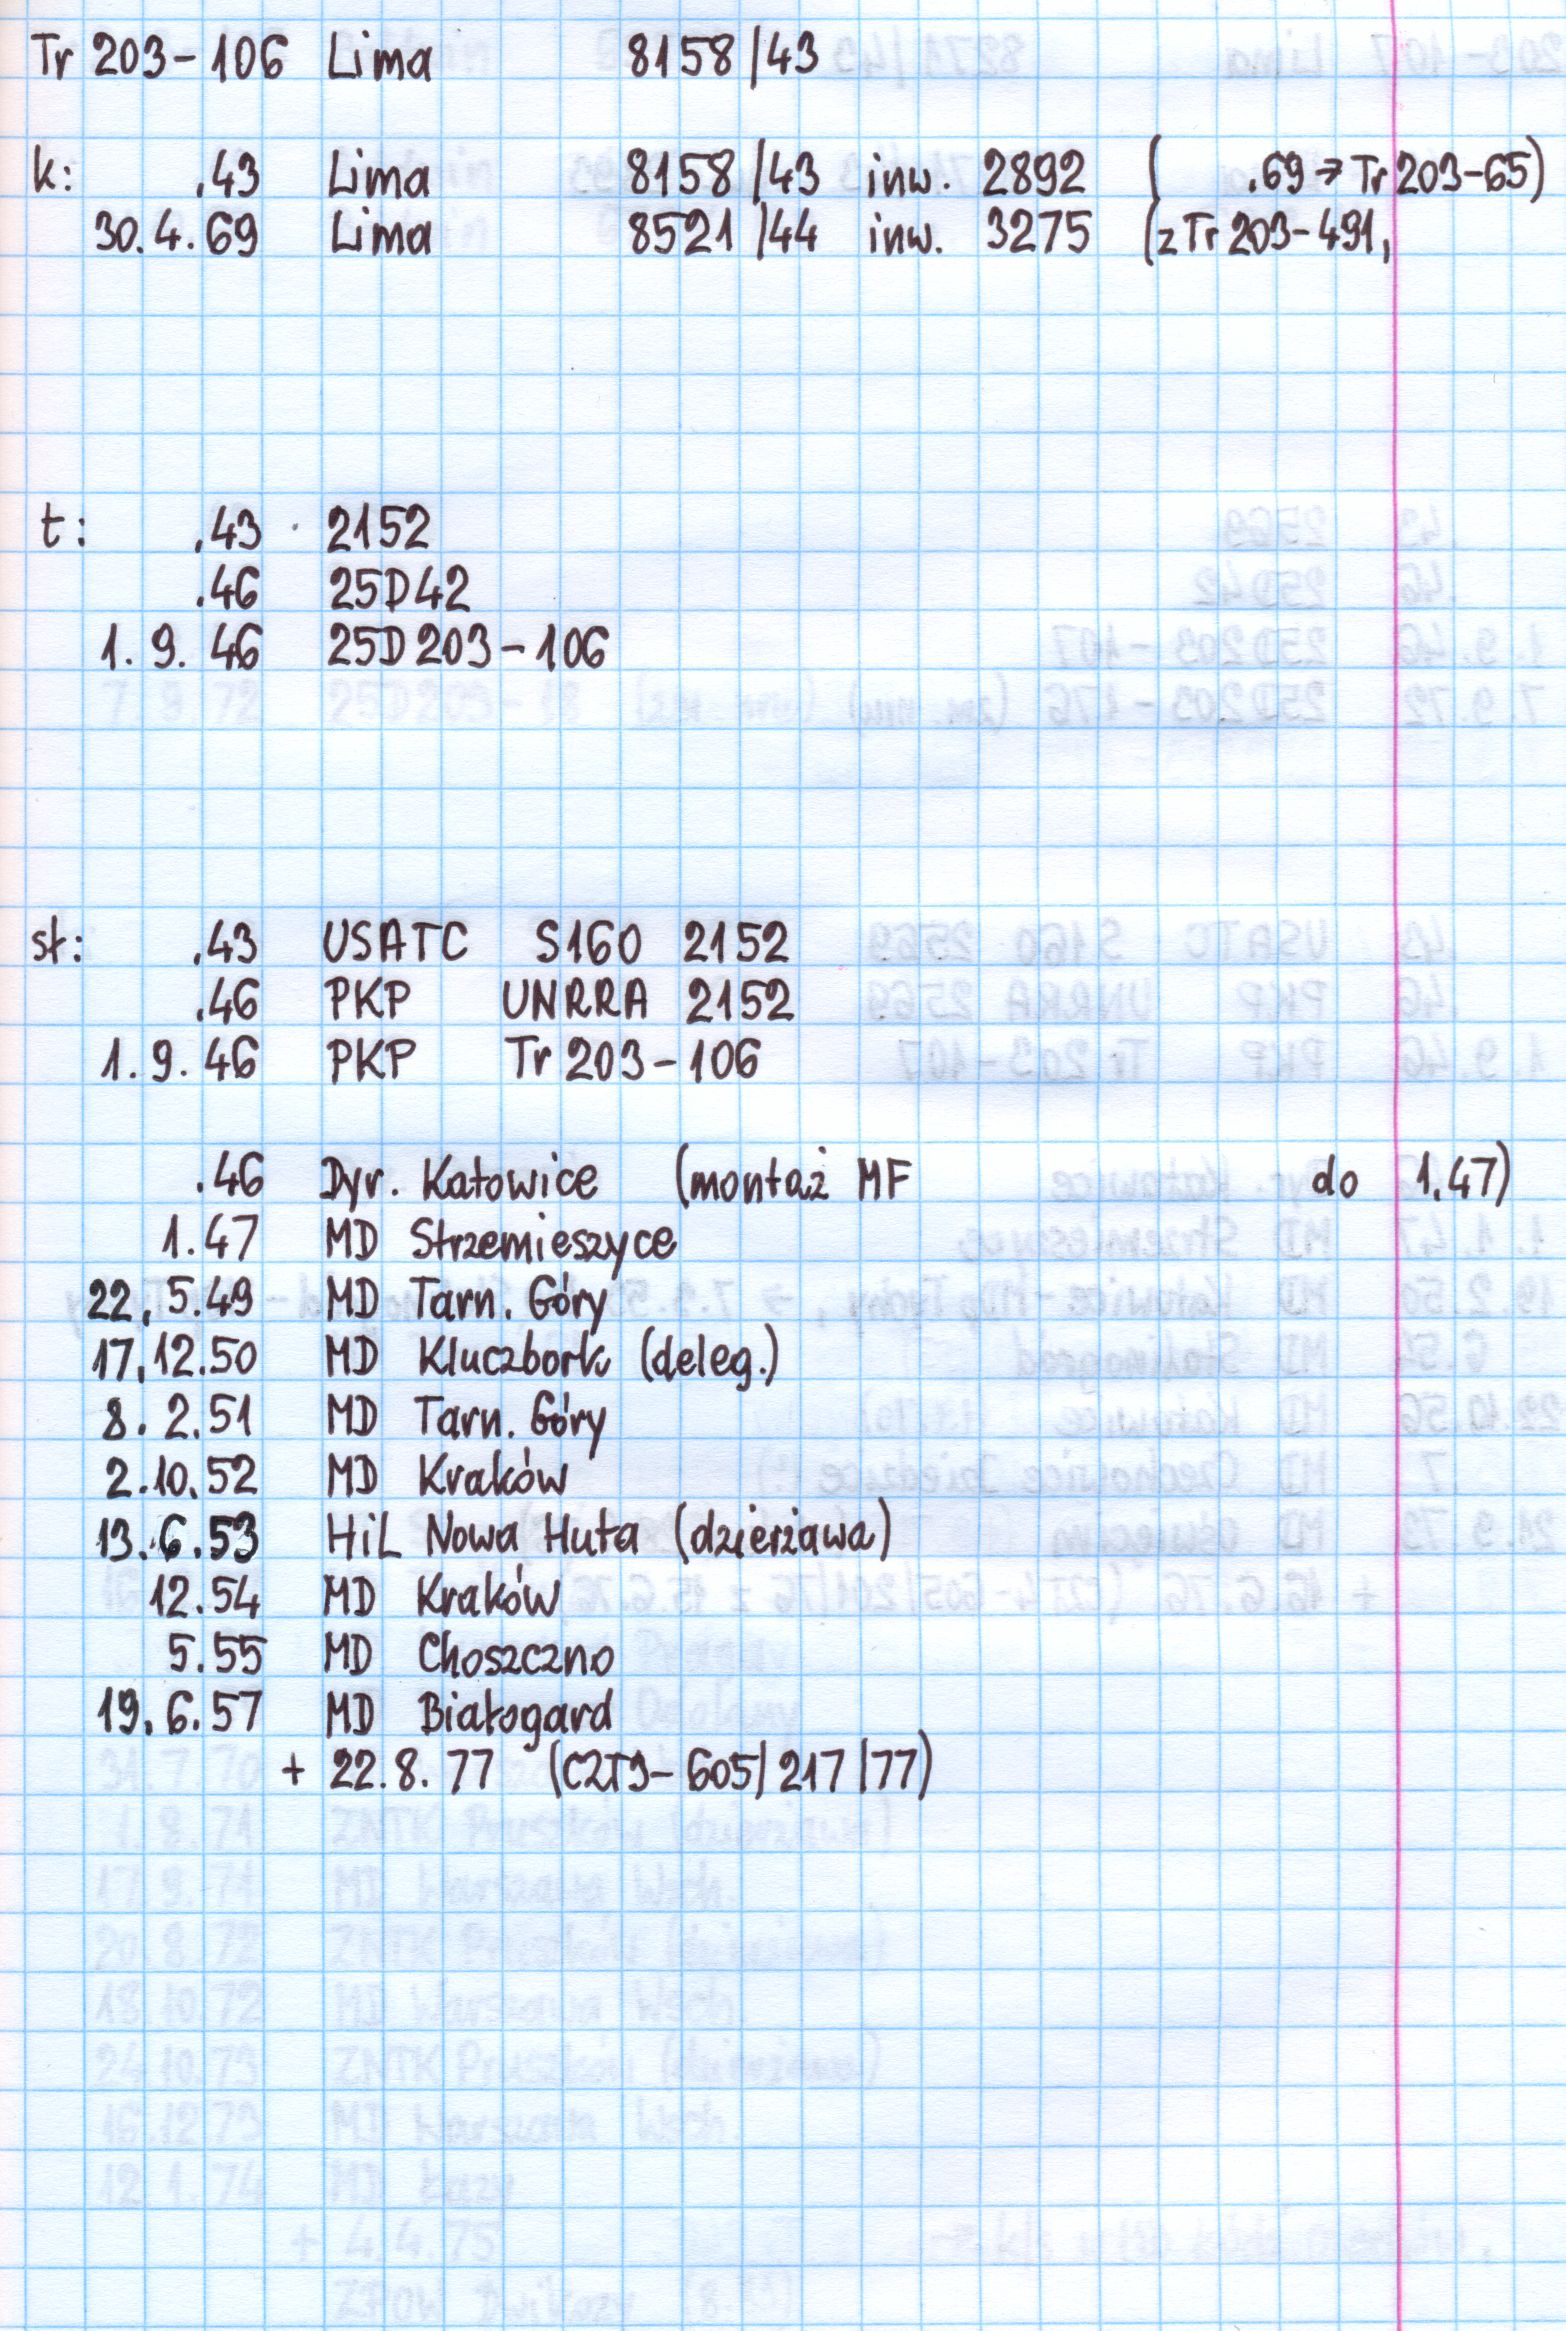 Tr 203-106 Lima 8158/43
k: .43 Lima 8158/43 inw. 2892 ( .69 → Tr 203-65)
30.4.69 Lima 8521/44 inw. 3275 (z Tr 203-491,
t: .43 2152
.46 25D42
1.9.46 25D203-106
st: .43 USATC S160 2152
.46 PKP UNRRA 2152
1.9.46 PKP Tr 203-106
.46 Dyr. Katowice (montaż MF do 1.47)
1.47 MD Strzemieszyce
22.5.49 MD Tarn. Góry
17.12.50 MD Kluczbork (deleg.)
8.2.51 MD Tarn. Góry
2.10.52 MD Kraków
13.6.53 HiL Nowa Huta (dzierżawa)
12.54 MD Kraków
5.55 MD Choszczno
19.6.57 MD Białogard
+ 22.8.77 (CZT9-605/217/77)